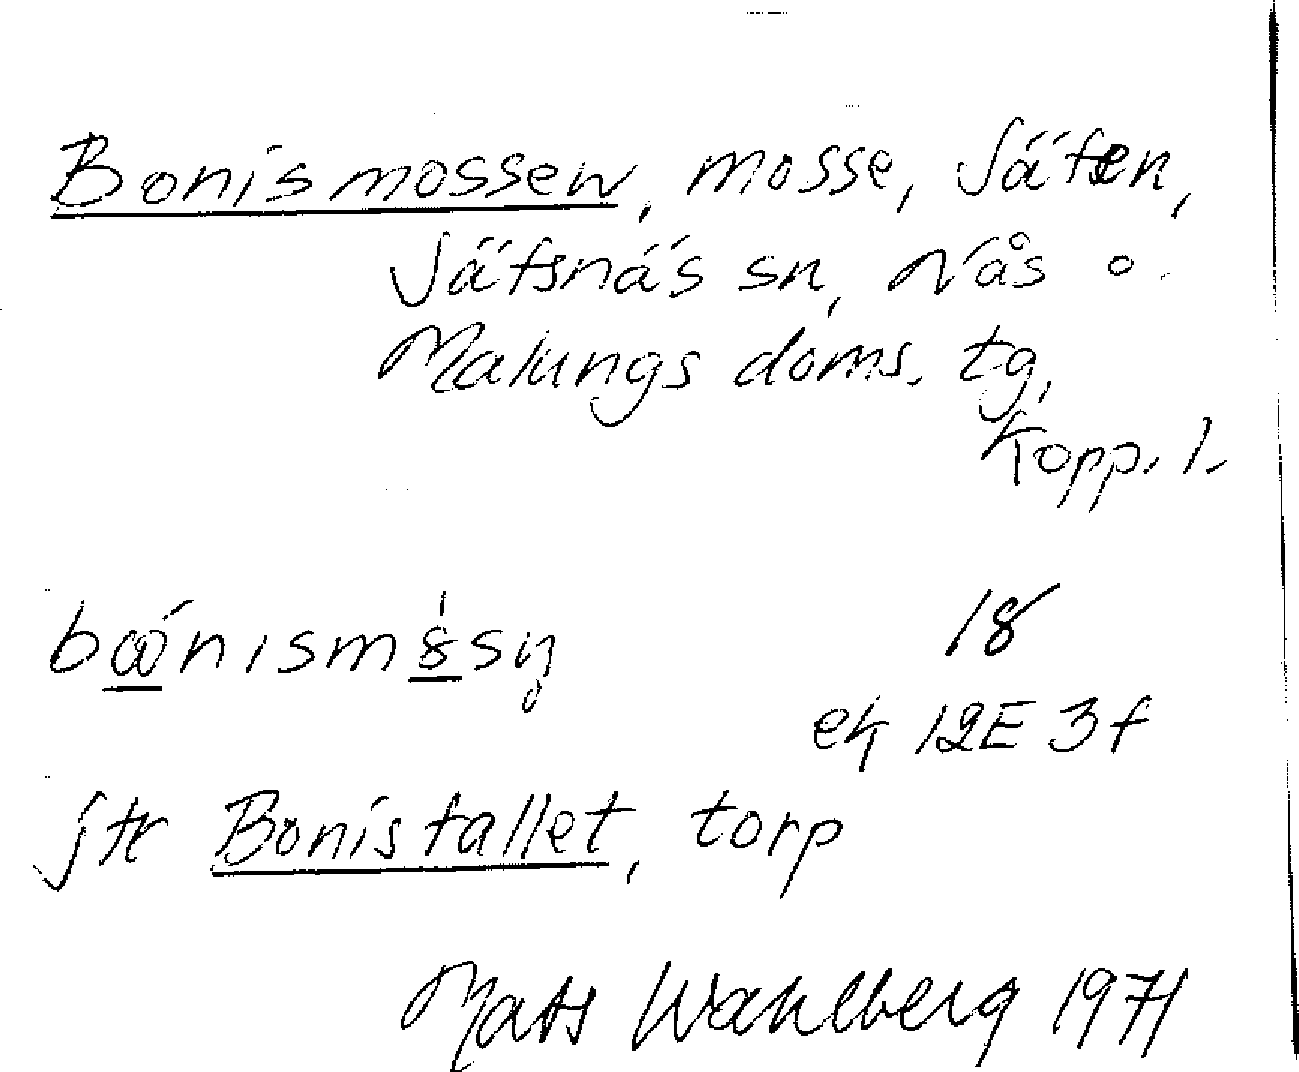 Bonismossen, mosse, Säfsen,
Säfsnäs sn, Nås o.
Malungs doms. tg,
Kopp. l.
18
ek 12E 3f
jfr Bonistallet, torp
Mats Wahlberg 1971